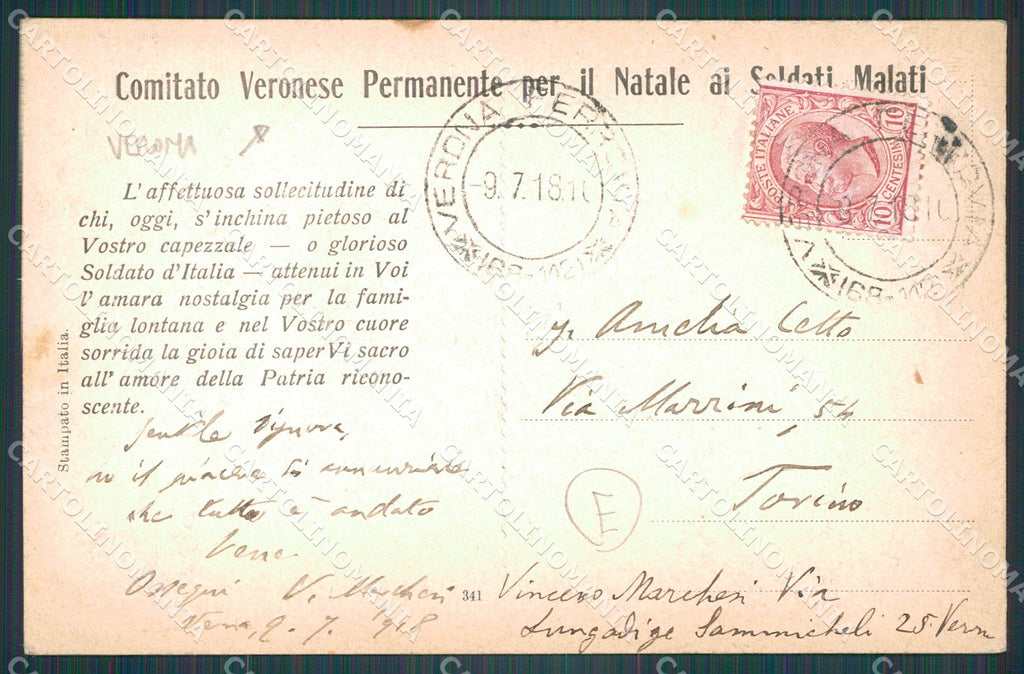 Comitato Veronese Permanente per il Natale ai Soldati Malati
VERONA
L'affettuosa sollecitudine di
chi, oggi, s'inchina pietoso al
Vostro capezzale — o glorioso
Soldato d'Italia — attenui in Voi
l'amara nostalgia per la fami-
glia lontana e nel Vostro cuore
sorrida la gioia di saperVi sacro
all'amore della Patria ricono-
scente.
Stampato in Italia.
Gentile Signora,
ho il piacere di annunziarle
che tutto è andato
bene.
Ossequi V. Marchesi
Verona, 9. 7. 1918
341
VERONA FERROVIA
-9.7.18.10
(68-112)
POSTE ITALIANE
10 CENTESIMI 10
FERROVIA
(68-112)
Amelia Cetto
Via Mazzini, 54
Torino
E
Vincenzo Marchesi Via
Lungadige Sammicheli 25. Verona
CARTOLINOMANIA